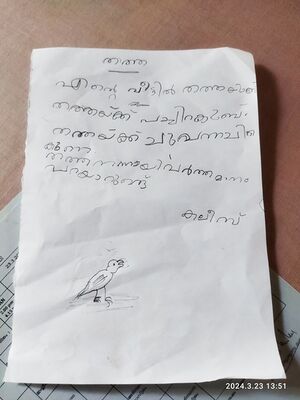 തത്ത
എന്റെ വീട്ടിൽ തത്തയുണ്ട്
തത്തയ്ക്ക് പച്ചിറകുണ്ട്
തത്തയ്ക്ക് ചുവന്ന
തത്ത നന്നായി വർത്തമാനം
പറയാറുണ്ട്
2024.3.23 13:51